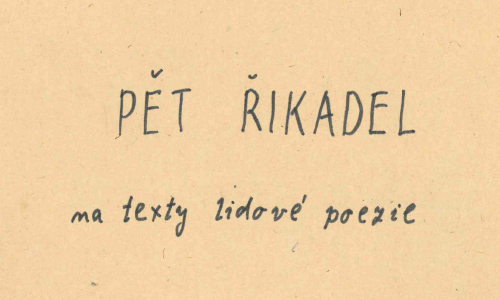 PĚT ŘIKADEL
na texty lidové poezie